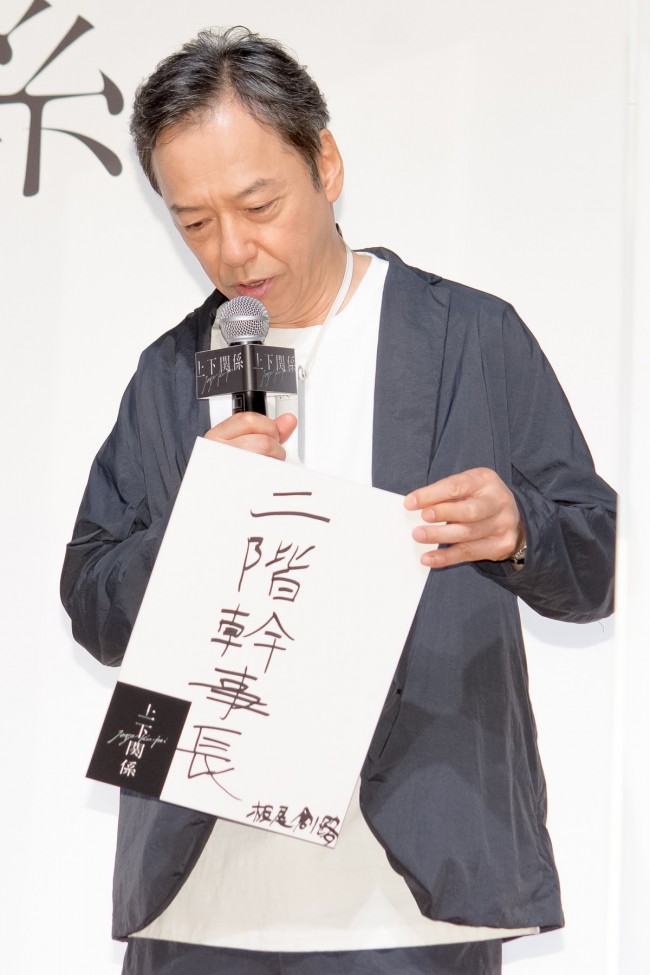 係
上下関係
上下関係
二階幹事長
上下関係
板尾創路